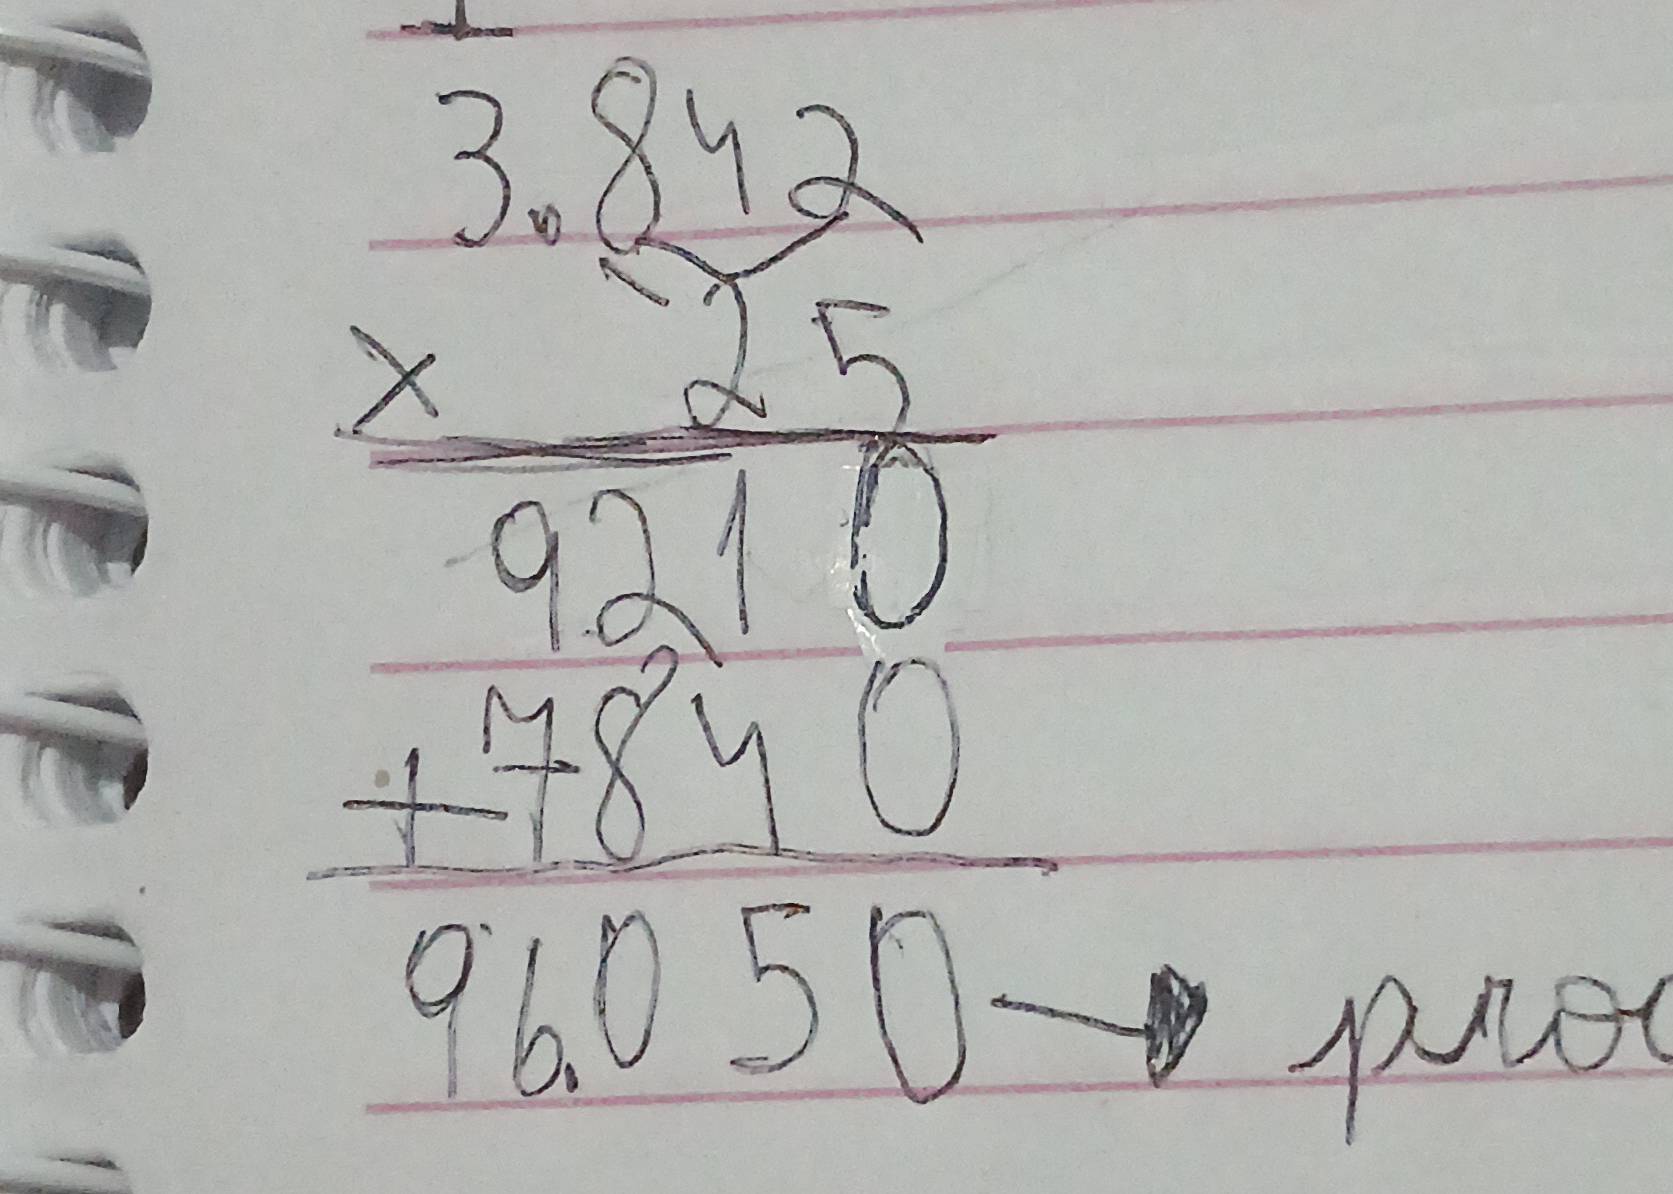 3.842
x 25
9210
+ 7840
96.050 → proc